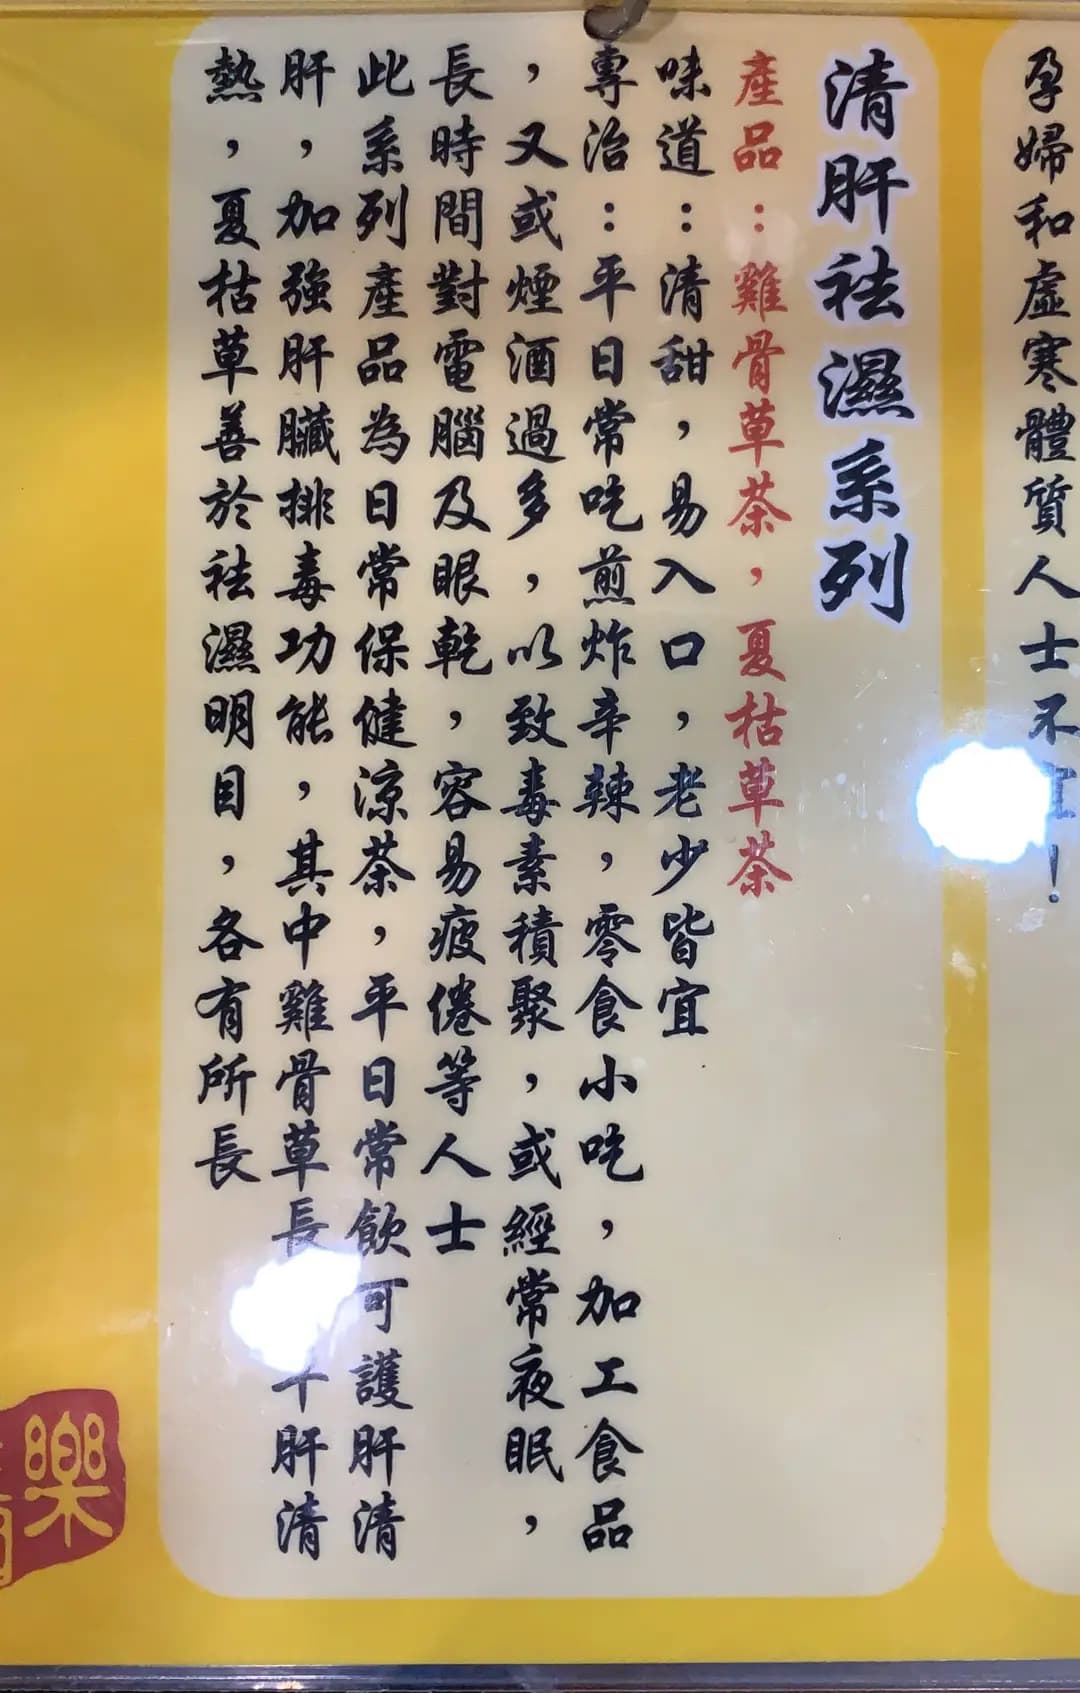 孕婦和虛寒體質人士不宜!
清肝祛濕系列
產品：雞骨草茶，夏枯草茶
味道：清甜，易入口，老少皆宜
專治：平日常吃煎炸辛辣，零食小吃，加工食品
，又或煙酒過多，以致毒素積聚，或經常夜眠，
長時間對電腦及眼乾，容易疲倦等人士
此系列產品為日常保健涼茶，平日常飲可護肝清
肝，加強肝臟排毒功能，其中雞骨草長 肝清
熱，夏枯草善於祛濕明目，各有所長
樂